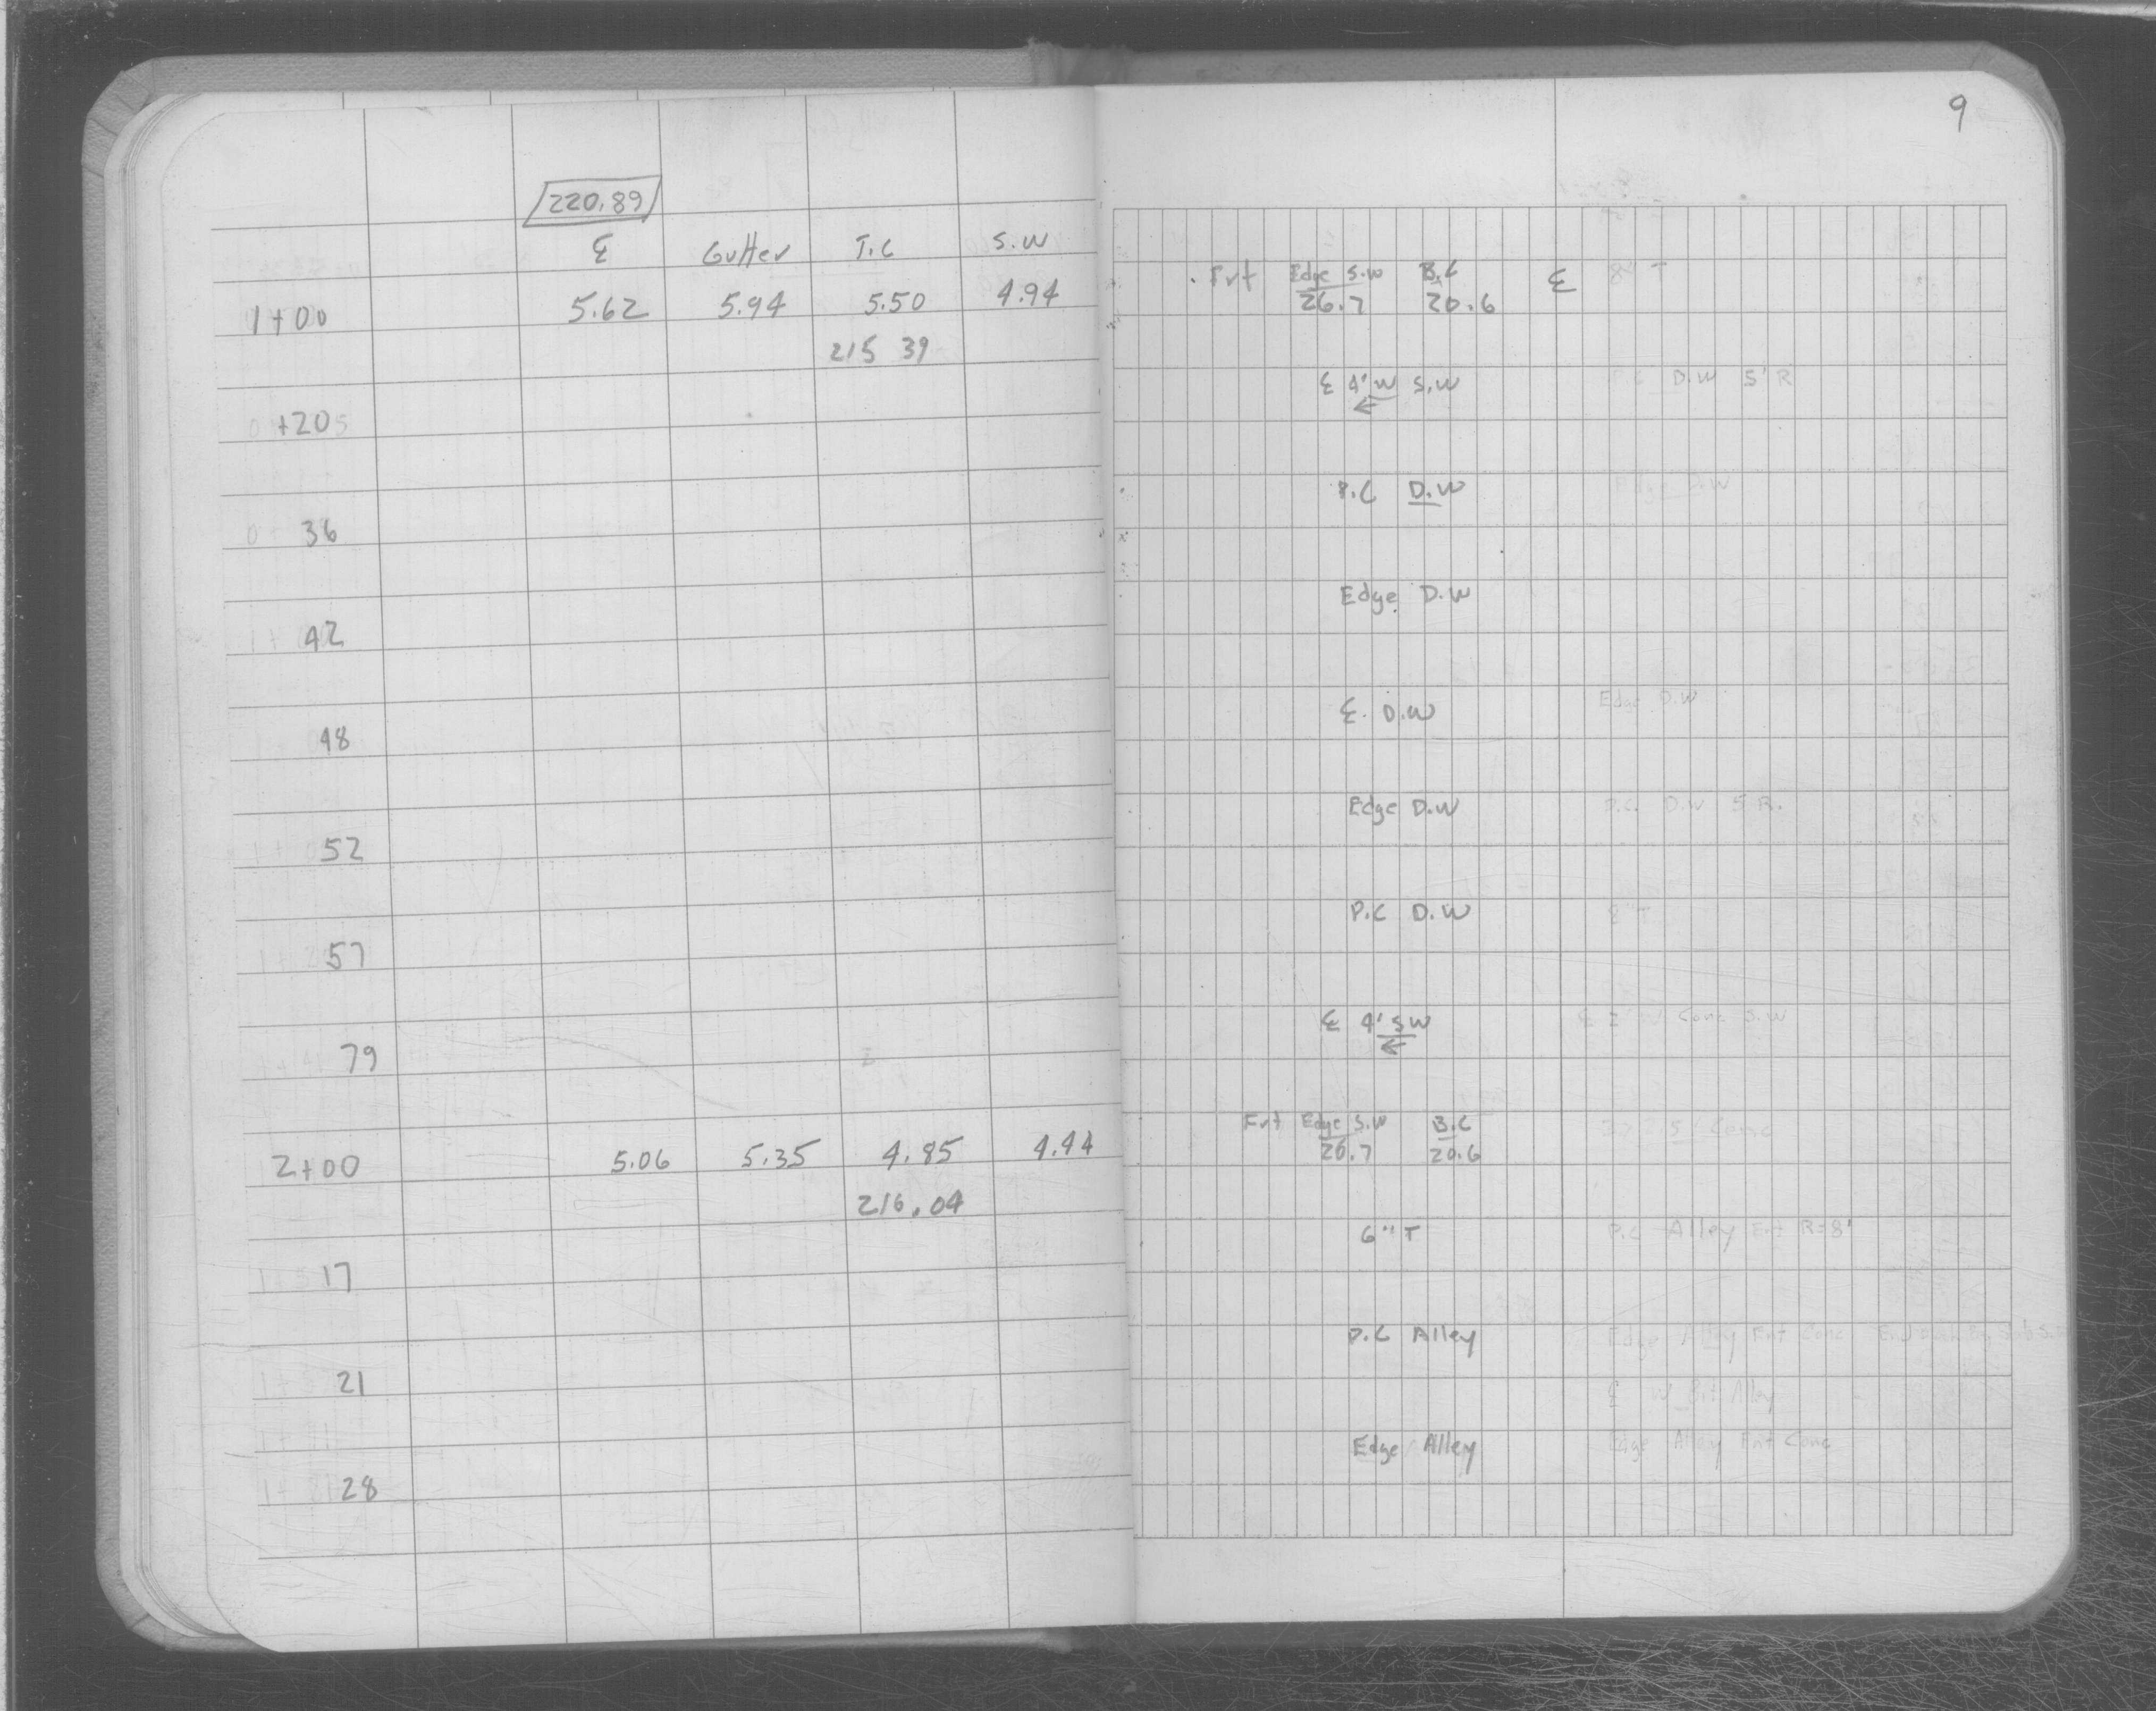 9
220.89
℄ Gutter T.C S.W
1+00 5.62 5.94 5.50 4.94
215 39
+20
36
42
48
52
57
79
2+00 5.06 5.35 4.85 4.44
216.04
17
21
28
Frt Edge S.W B.C ℄
26.7 20.6
℄ 4' W S.W
P.C D.W
Edge D.W
℄ D.W
Edge D.W
P.C D.W
℄ 4' S.W
Frt Edge S.W B.C
26.7 20.6
6" T
P.C Alley
Edge Alley